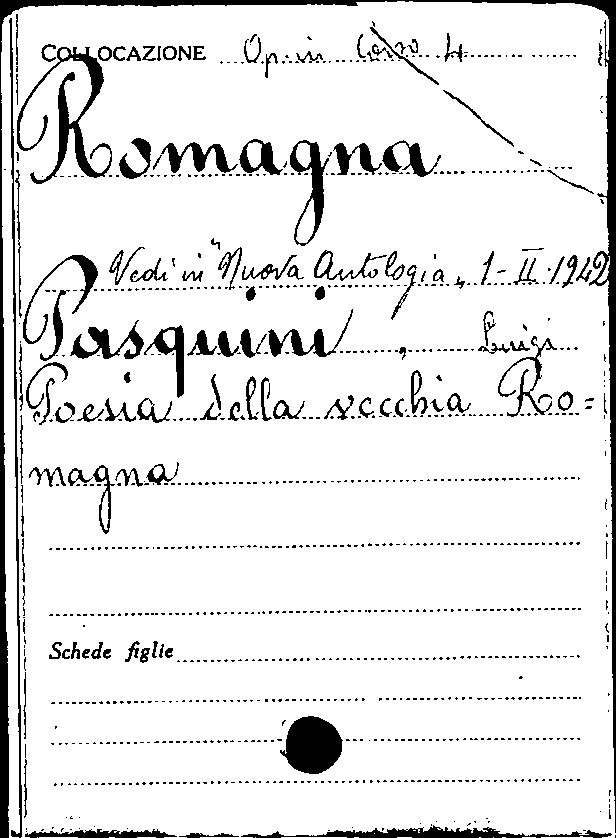 COLLOCAZIONE Op. in Corso 4
Romagna
Vedi in "Nuova Antologia„ 1-II-1942
Pasquini, Luigi
Poesia della vecchia Ro=
magna
Schede figlie